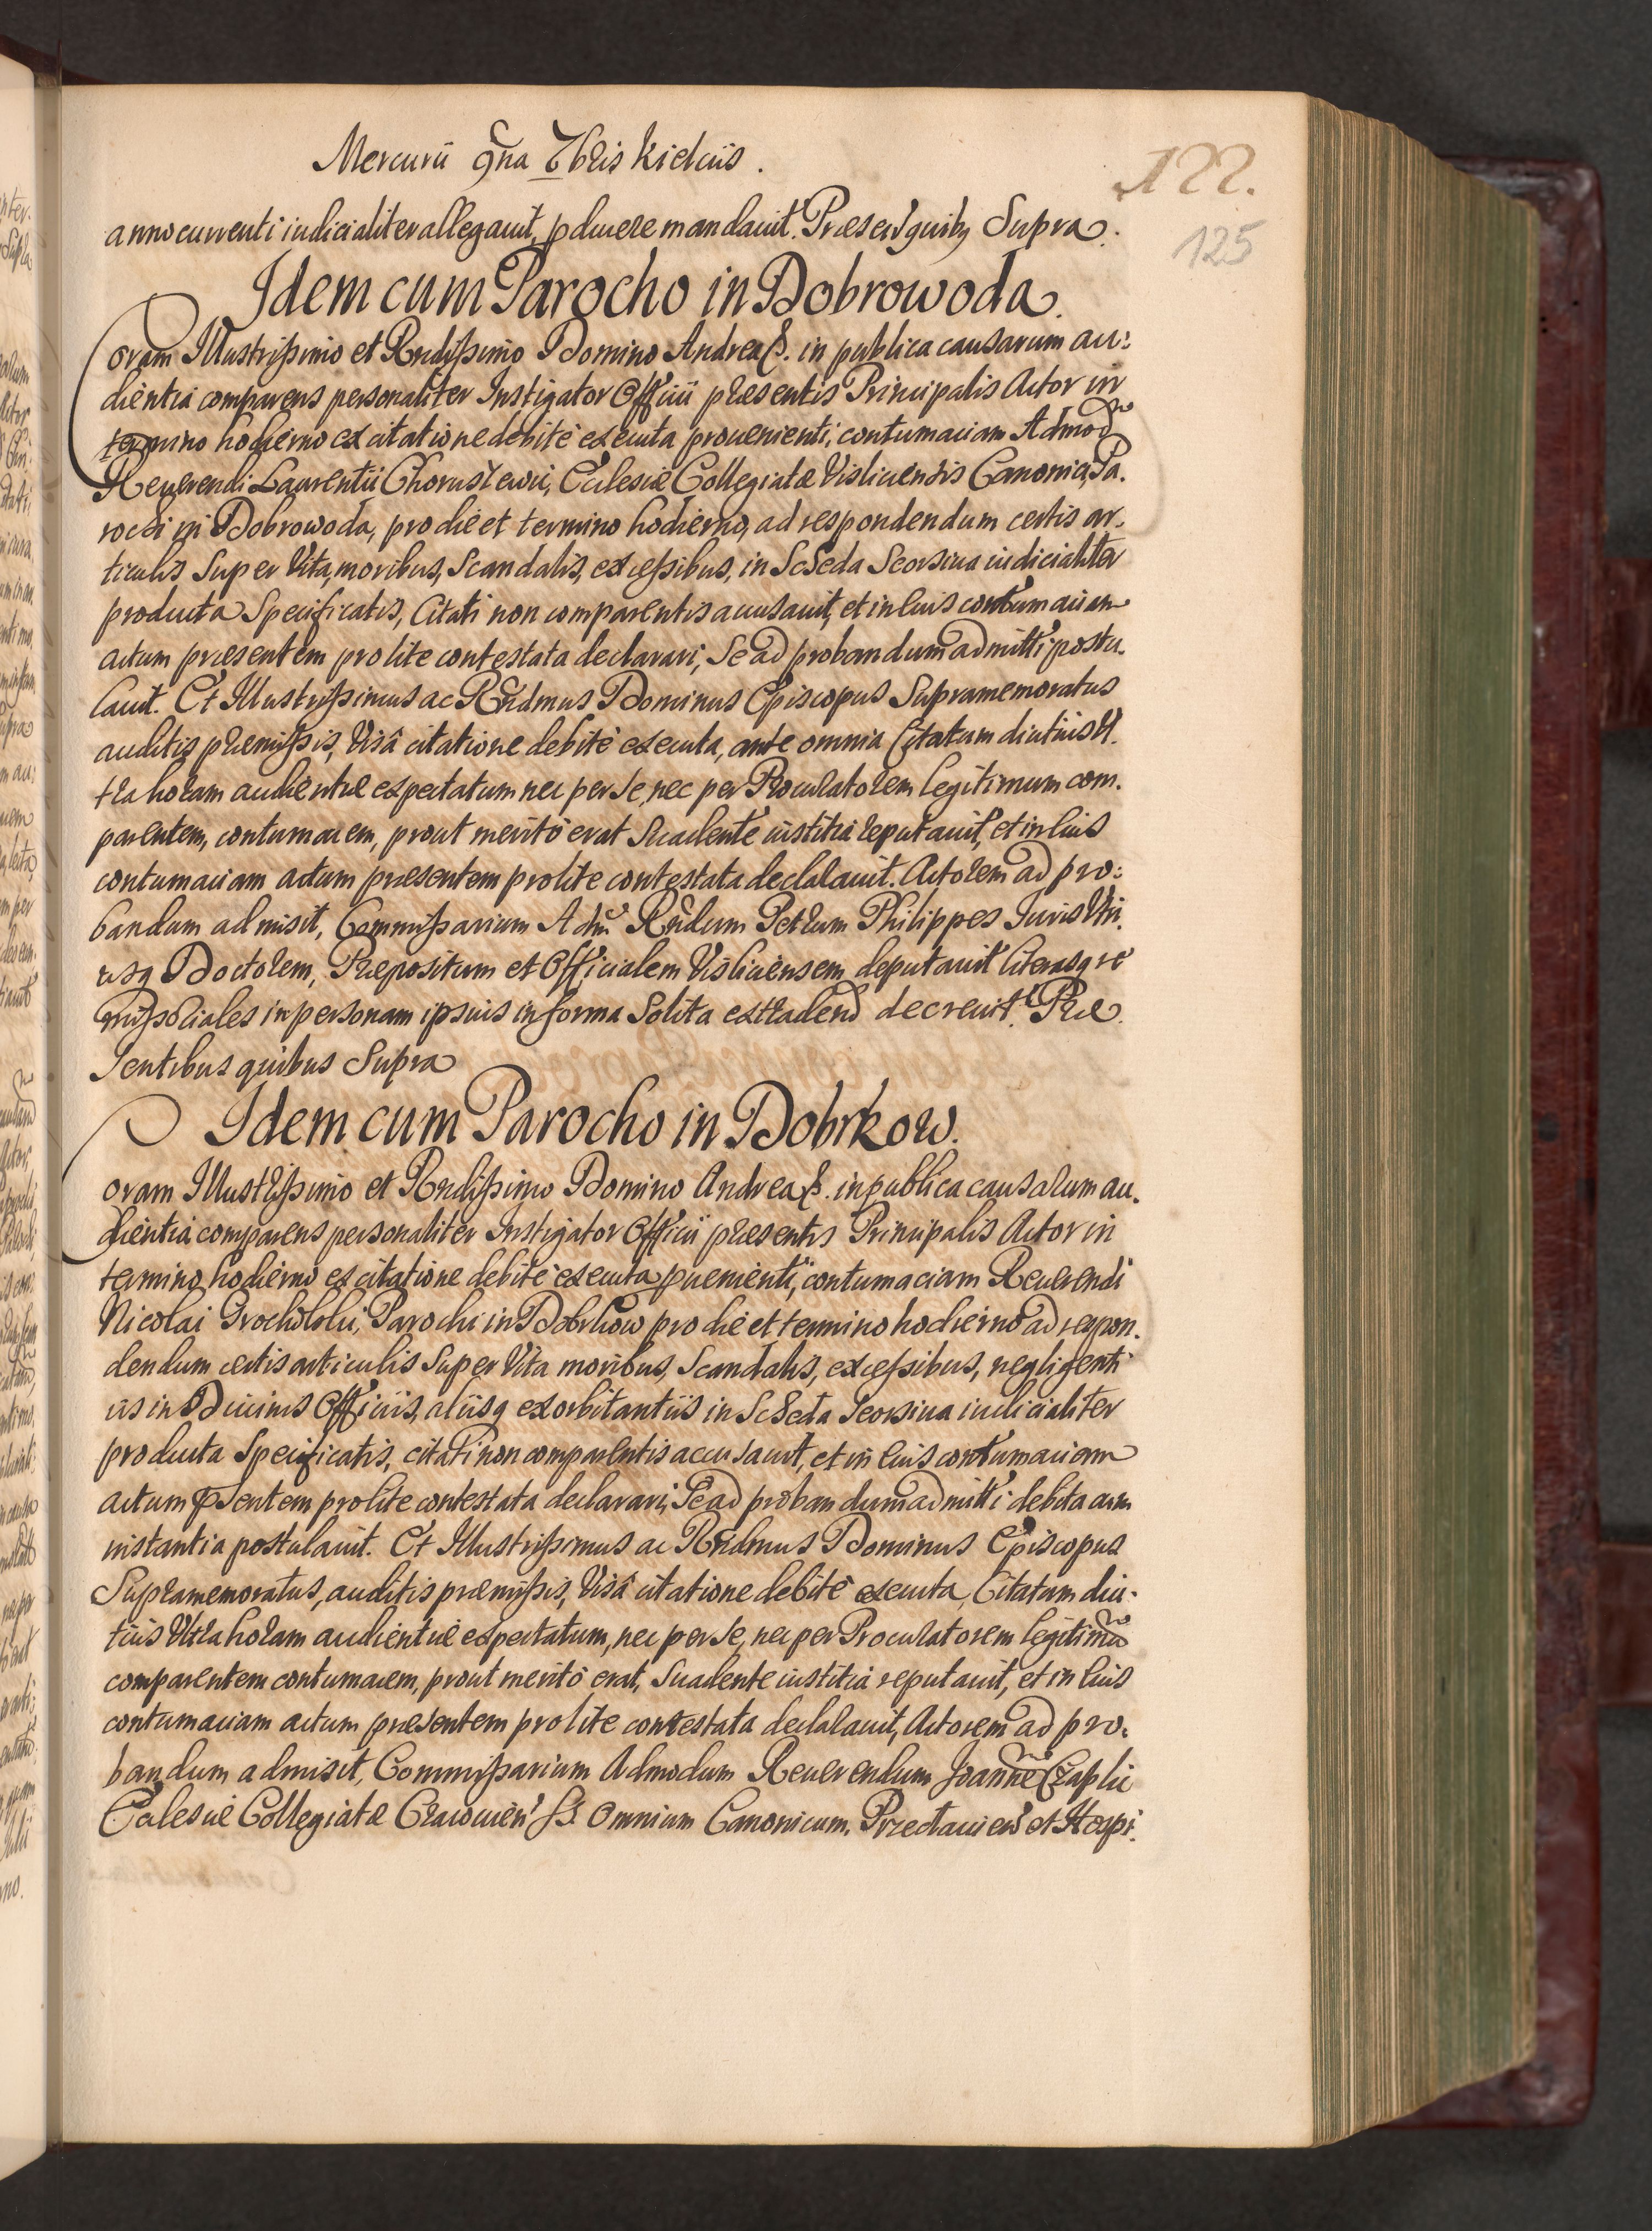 Mercurii 9na 7bris Kielciis.
122.
125
anno currenti iudicialiter allegavit, pducere mandavit. Præsen' quibq Supra.
Idem cum Parocho in Dobrowoda.
Coram Illustrißimo et Rndißimo Domino Andrea &. in publica causarum au:
dientia comparens personaliter Instigator Officii præsentis Principalis Actor in
termino hodierno ex citatione debitè executa provenienti, contumaciam Admod
Reverendi Laurentii Chorusiewic, Ecclesiæ Collegiatæ Visliciensis Canonici, Pa.
rochi in Dobrowoda, pro die et termino hodierno, ad respondendum certis ar.
ticulis Super Vita, moribus, Scandalis, excessibus, in Scheda Seorsiva iudicialiter
producta Specificatis, Citati non comparentis accusavit, et in eius contumaciam
actum præsentem pro lite contestata declarari, Se ad probandum admitti postu.
lavit. Et Illustrißimus ac Rndmus Dominus Episcopus Supramemoratus
auditis præmißis, Visâ citatione debitè executa, ante omnia Citatum diutius Ul.
tra horam audientiæ expectatum nec per se, nec per Procuratorem legitimum com.
parentem, contumacem, prout meritò erat Suadente iustitia reputavit, et in eius
contumaciam actum præsentem pro lite contestata declaravit. Actorem ad pro:
bandum admisit, Commißarium Adm. Rndum Petrum Philippes Juris Utri.
usq Doctorem, Præpositum et Officialem Visliciensem deputavit literasq re
mißoriales in personam ipsius in forma Solita extradend decrevit. Præ
sentibus quibus Supra
Idem cum Parocho in Dobrkow.
Coram Illustrißimo et Rndißimo Domino Andrea &. in publica causarum au.
dientia comparens personaliter Instigator Officii præsentis Principalis Actor in
termino hodierno ex citatione debitè executa pvenienti, contumaciam Reverendi
Nicolai Grocholski, Parochi in Dobrkow pro die et termino hodierno ad respon.
dendum certis articulis Super Vita moribus, Scandalis, excessibus, negligenti
is in Divinis Officiis, aliisq exorbitantiis in Scheda Seorsiva iudicialiter
producta Specificatis, citati non comparentis accusavit, et in eius contumaciam
actum psentem pro lite contestata declarari, Se ad probandum admitti debita cum
instantia postulavit. Et Illustrißimus ac Rndmus Dominus Episcopus
Supramemoratus, auditis præmißis, Visâ citatione debitè executa, Citatum diu.
tius Ultra horam audientiæ expectatum, nec per se, nec per Procuratorem legitimu
comparentem contumacem, prout meritò erat, Suadente iustitia reputavit, et in eius
contumaciam actum præsentem pro lite contestata declaravit, Actorem ad pro.
bandum admisit, Commißarium Admodum Reverendum Joanne Czaplic
Ecclesiæ Collegiatæ Cracovien' SS. Omnium Canonicum, Przeclavien' et Hospi.